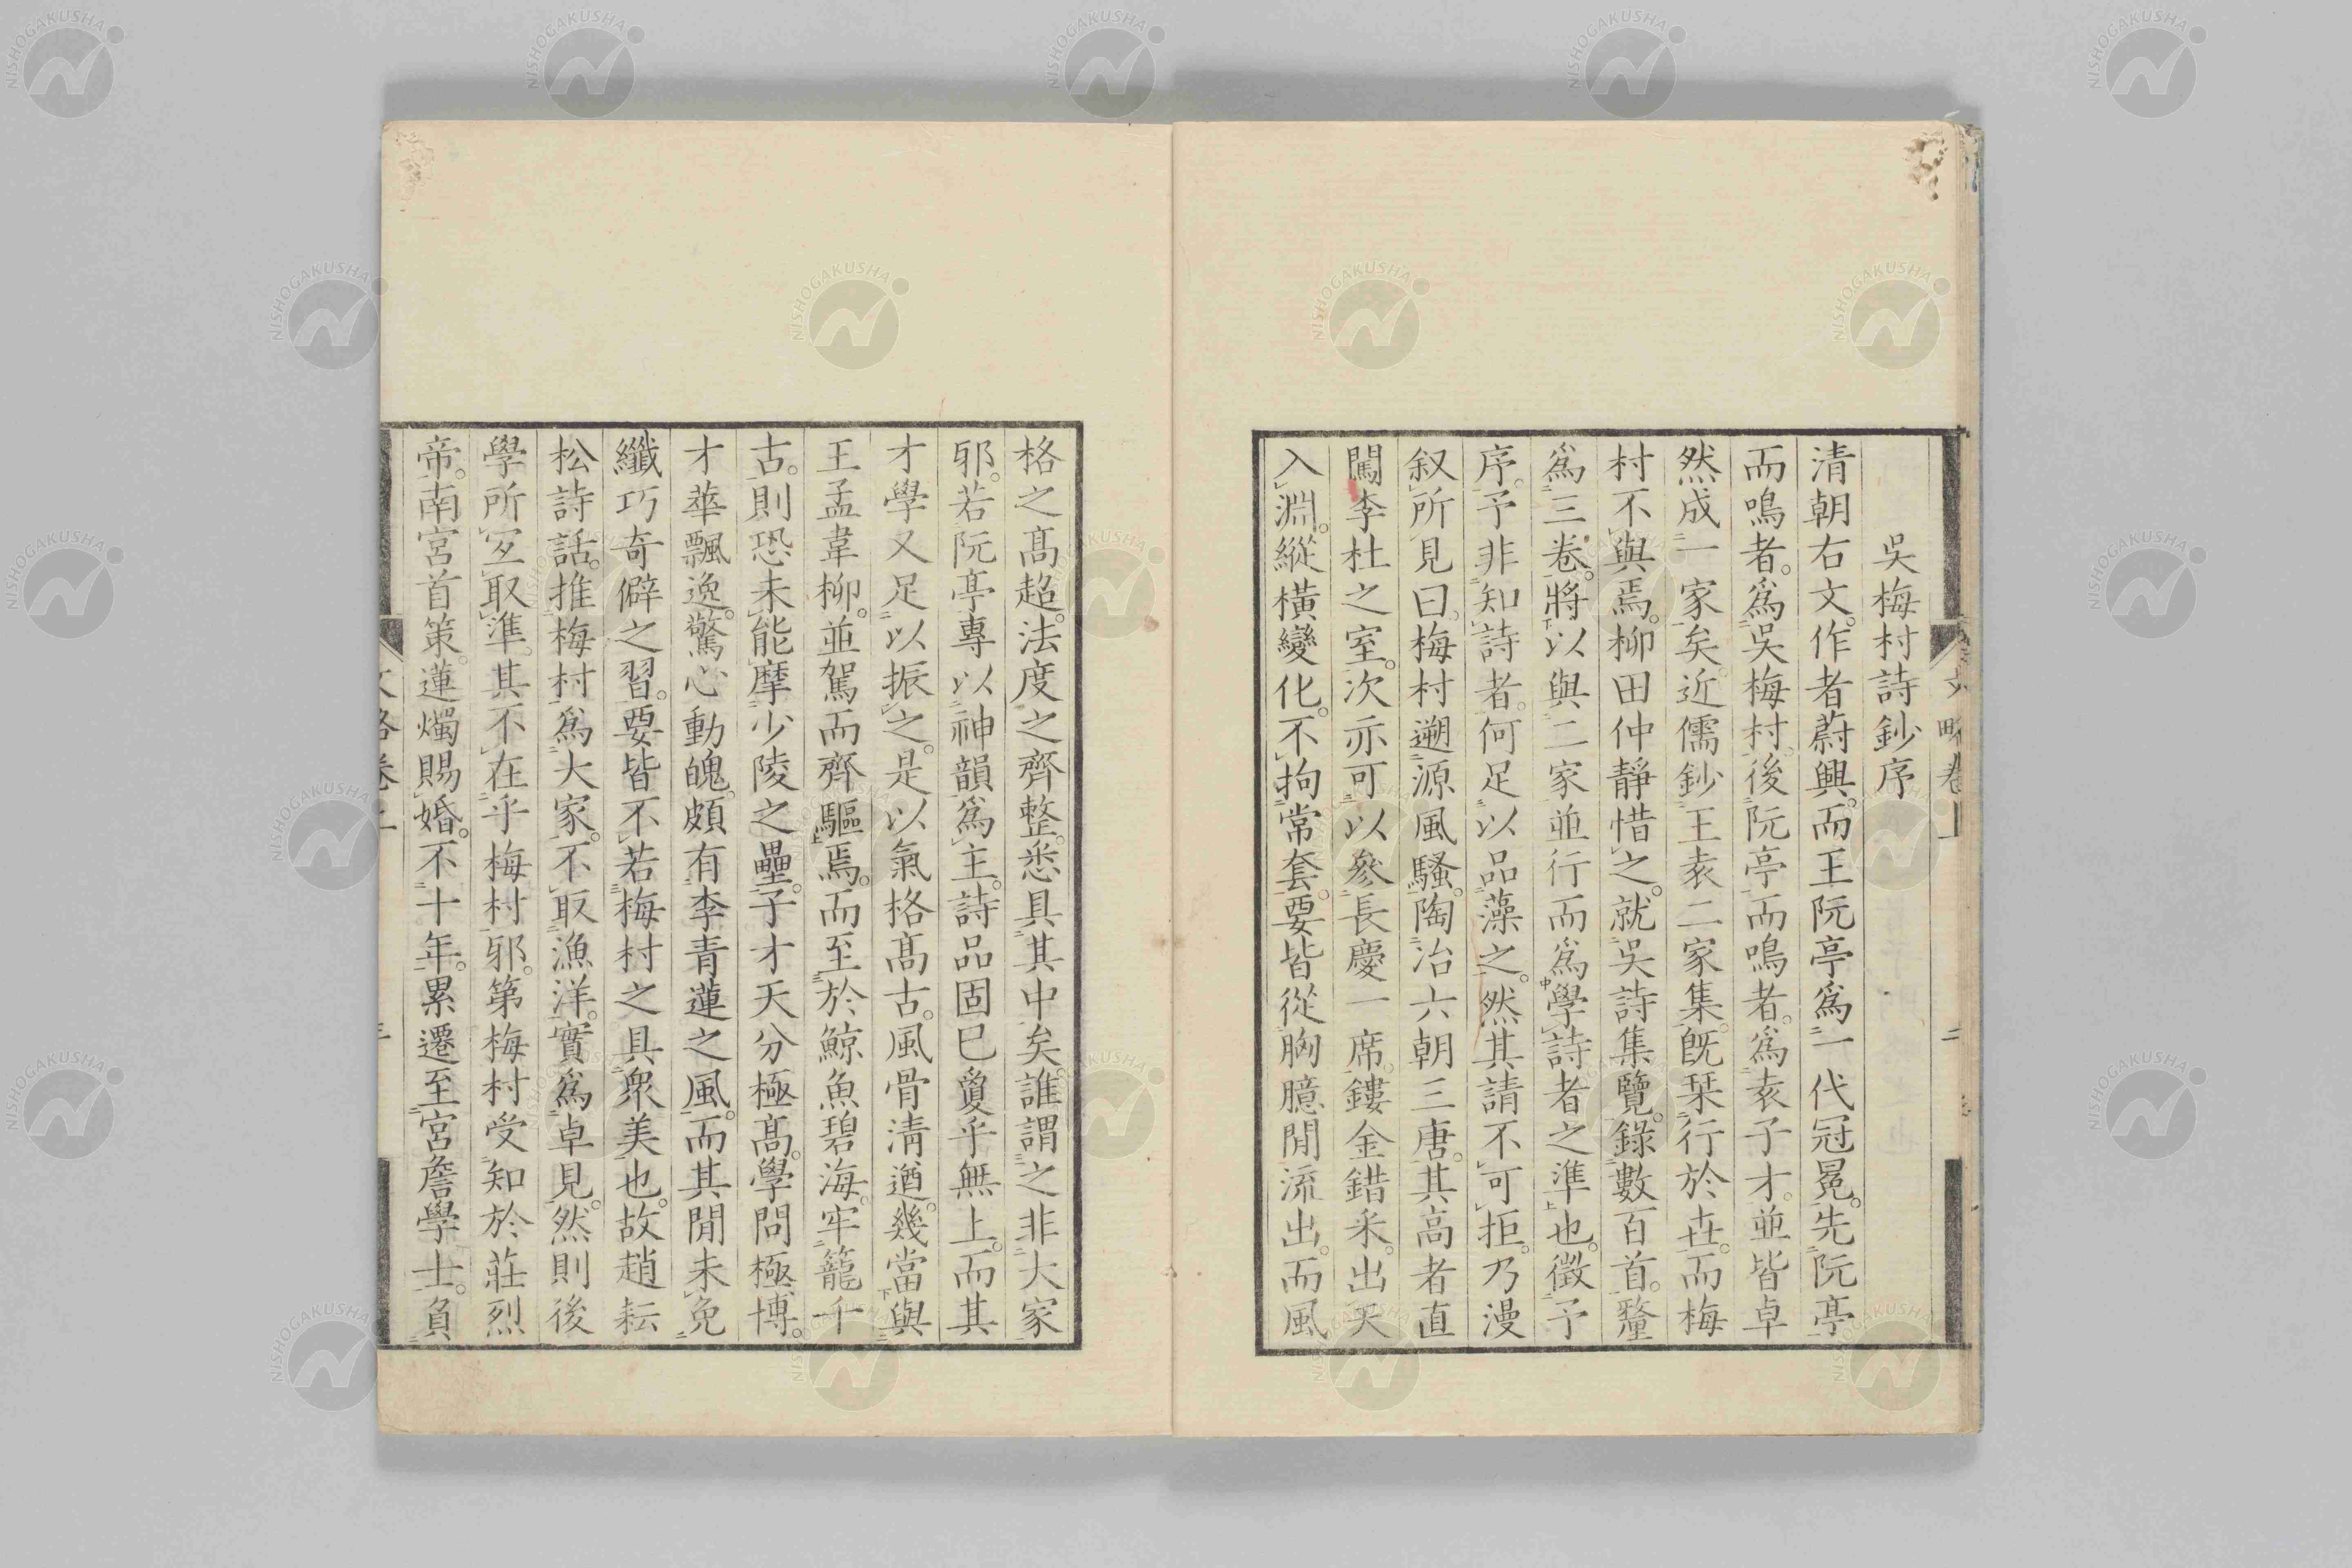 吳梅村詩鈔序
清朝右文。作者蔚興。而王阮亭爲一代冠冕。先阮亭
而鳴者。爲吳梅村。後阮亭而鳴者。爲袁子才。並皆卓
然成一家矣。近儒鈔王袁二家集。既栞行於世。而梅
村不與焉。柳田仲靜惜之。就吳詩集覽。錄數百首。釐
爲三卷。將以與二家並行而爲學詩者之準也。徵予
序。予非知詩者。何足以品藻之。然其請不可拒。乃漫
叙所見曰。梅村遡源風騷。陶冶六朝三唐。其高者直
闖李杜之室。次亦可以參長慶一席。鏤金錯采。出天
入淵。縱橫變化。不拘常套。要皆從胸臆閒流出。而風
格之高超。法度之齊整。悉具其中矣。誰謂之非大家
邪。若阮亭專以神韻爲主。詩品固已夐乎無上。而其
才學又足以振之。是以氣格高古。風骨清遒。幾當與
王孟韋柳。並駕而齊驅焉。而至於鯨魚碧海。牢籠千
古。則恐未能摩少陵之壘。子才天分極高。學問極博。
才華飄逸。驚心動魄。頗有李青蓮之風。而其閒未免
纖巧奇僻之習。要皆不若梅村之具衆美也。故趙耘
松詩話。推梅村爲大家。不取漁洋。實爲卓見。然則後
學所宜取準。其不在乎梅村邪。第梅村受知於莊烈
帝。南宮首策。蓮燭賜婚。不十年。累遷至宮詹學士。負
文略卷上
二